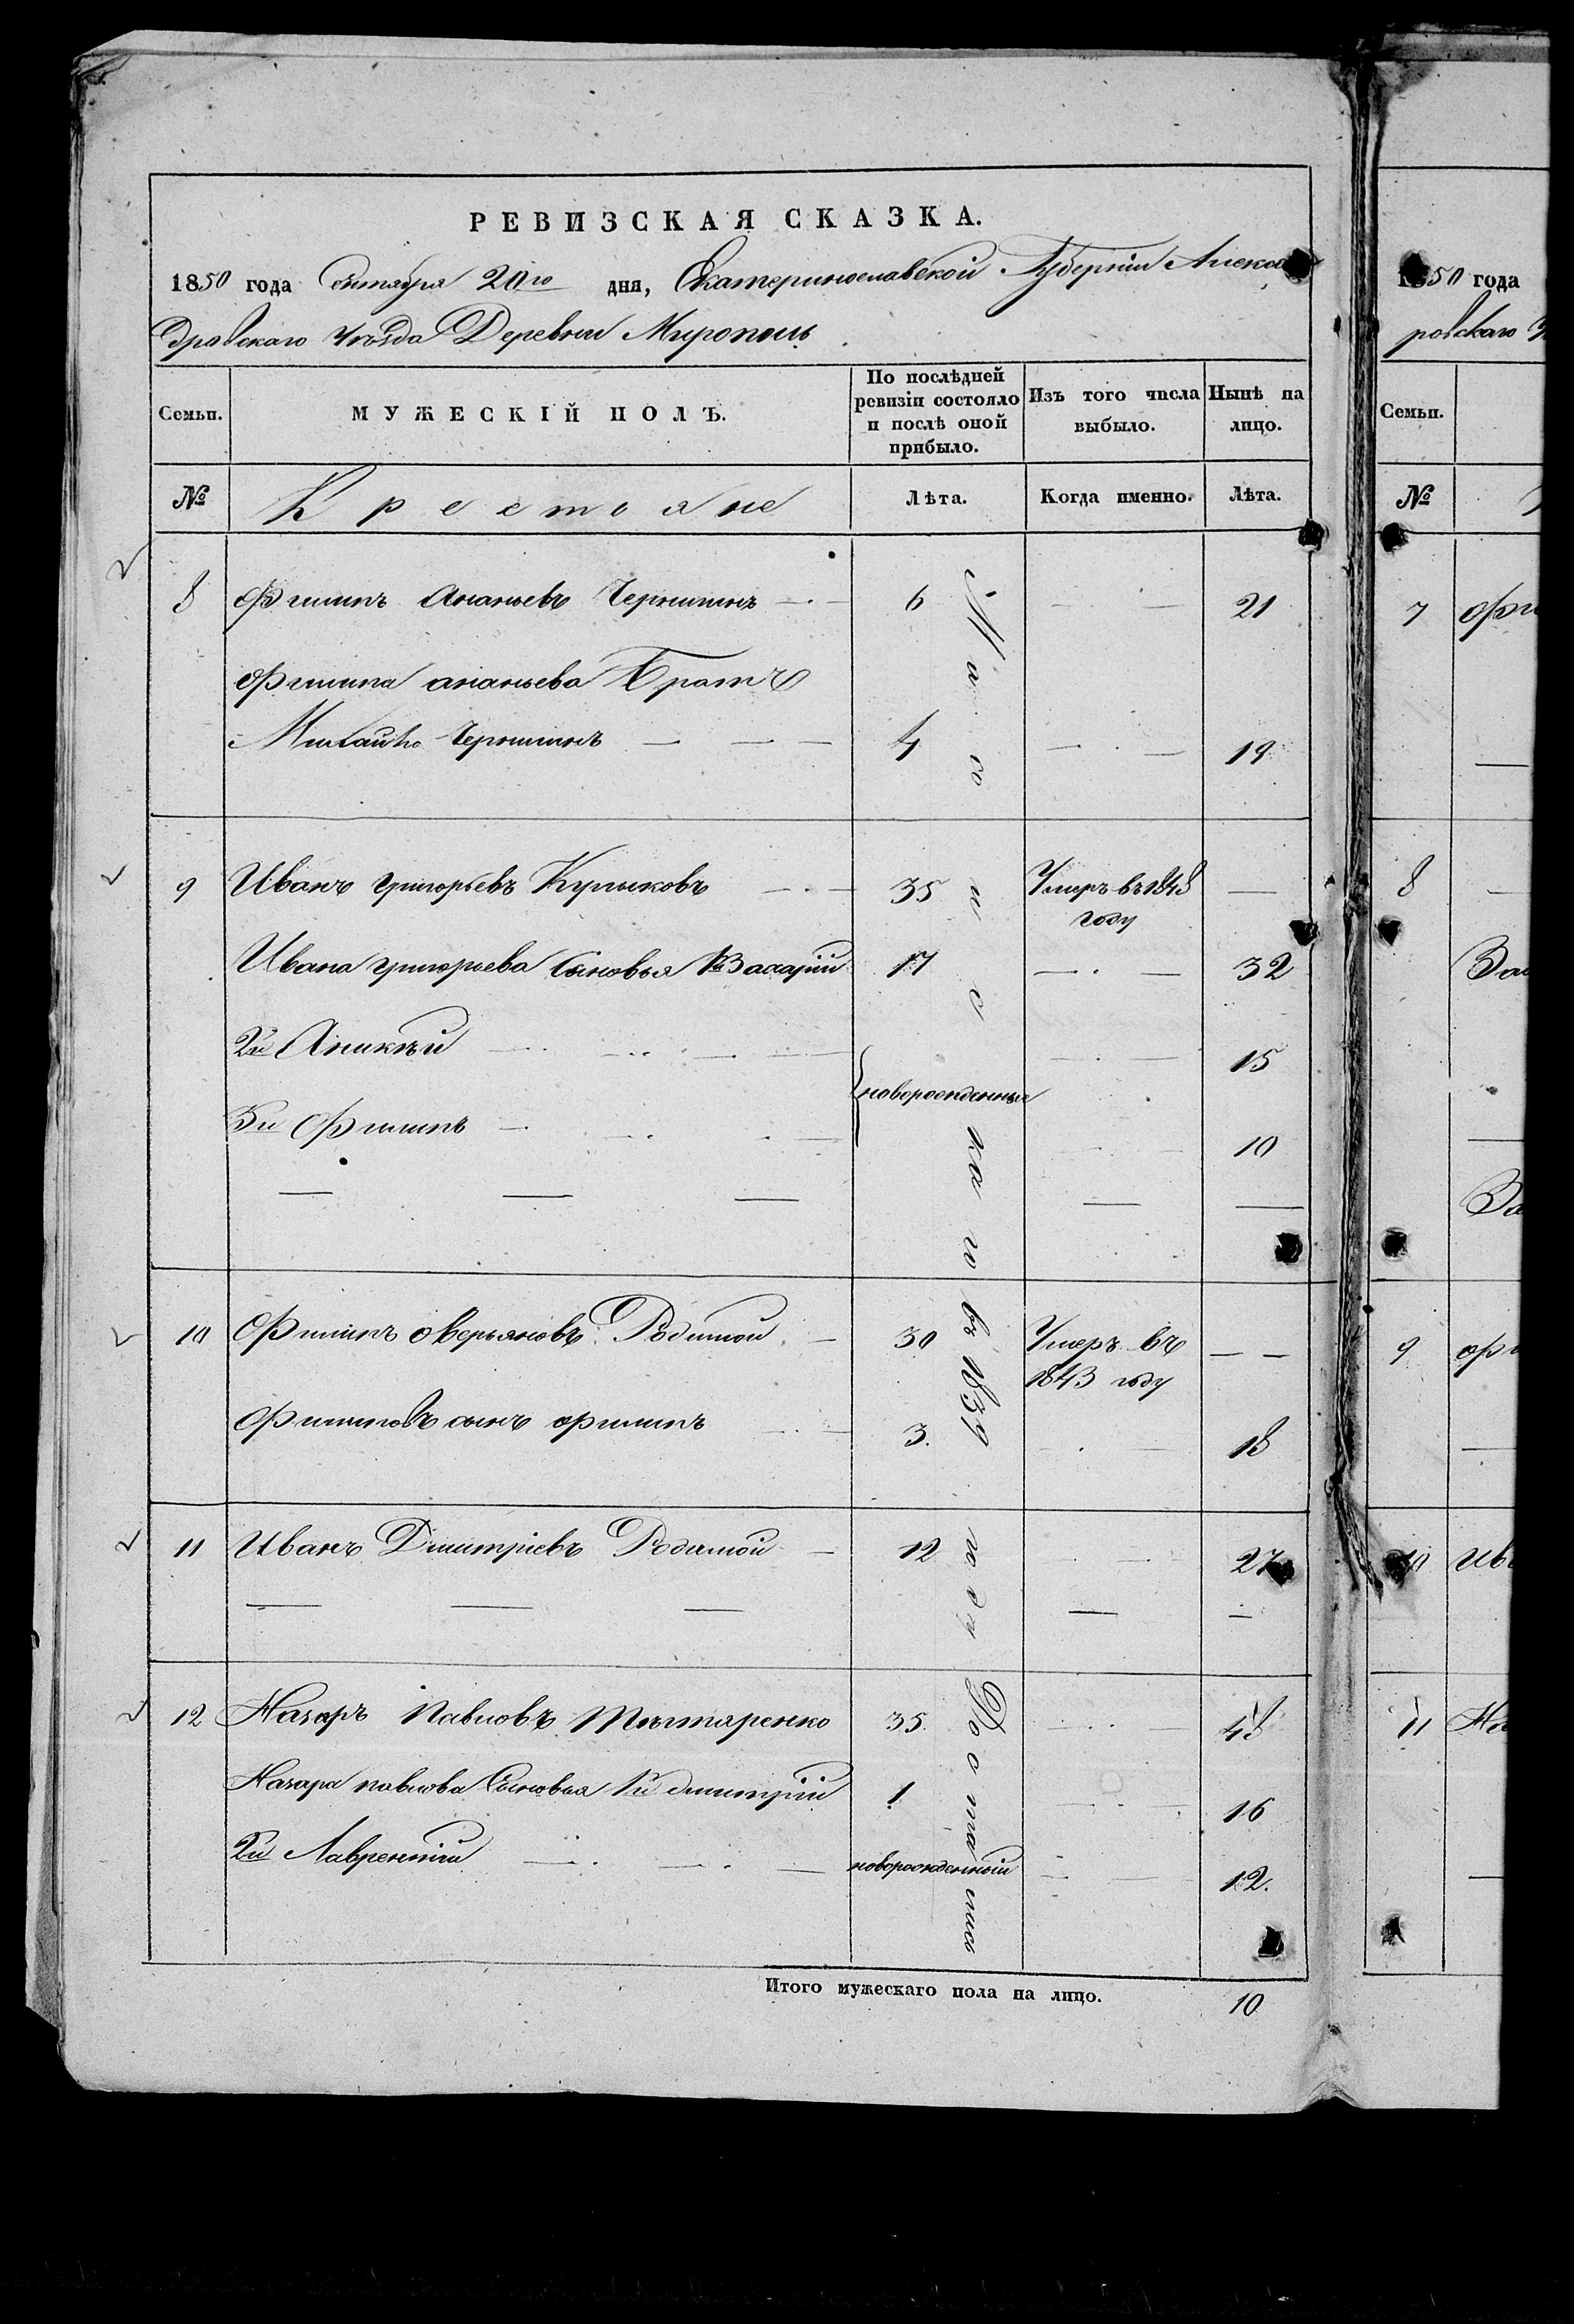 РЕВИЗСКАЯ СКАЗКА.
1850 года Сентября 20го дня, Екатеринославской Губерніи Алекса
дровскаго Уѣзда Деревни Мирополь
Семьи.
МУЖЕСКІЙ ПОЛЪ.
По послѣдней ревизіи состояло и послѣ оной прибыло.
Изъ того числа выбыло.
Нынѣ на лицо.
№ Крестьяне Лѣта. Когда именно. Лѣта.
8 Филипъ Ананьевъ Чернишинъ 6 21
Филипа ананьева Братъ
Михайло Чернишинъ 4 19
9 Иванъ Григорьевъ Куликовъ 35 Умеръ въ 1848 году
Ивана григорьева Сыновья 1й Захарій 17 32
2й Аникѣй 15
новорожденныя
3й Филипъ 10
10 Филипъ оверьяновъ Родимой 30 Умеръ въ 1843 году
Филиповъ сынъ филипъ 3. 18
11 Иванъ Дмитріевъ Родимой 12 27
12 Назаръ Павловъ 35. 48
Назара павлова Сыновья 1й дмитрій 1 16
2й Лаврентій новорожденный 12.
въ 1839 году Достались
Итого мужескаго пола на лицо. 10
1850 года
ровскаго
Семьи.
№
7
8
9
10
11